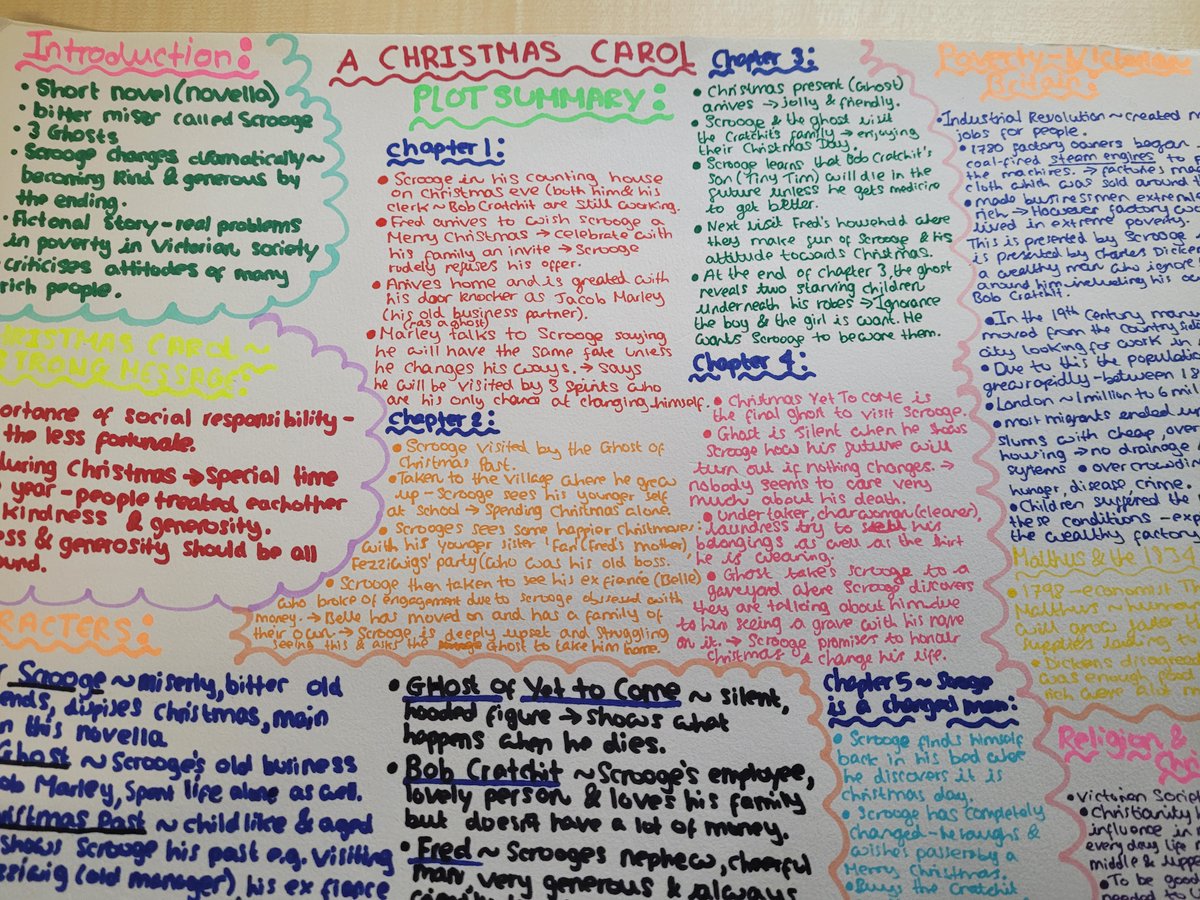 Introduction:
• Short novel (novella)
• bitter miser called Scrooge
• 3 Ghosts
• Scrooge changes dramatically ~
becoming kind & generous by
the ending.
• Fictional story - real problems
in poverty in Victorian society
criticises attitudes of many
rich people.
CHRISTMAS CAROL ~
STRONG MESSAGE:
ortance of social responsibility -
the less fortunate.
during Christmas → special time
year - people treated eachother
kindness & generosity.
ess & generosity should be all
ound.
A CHRISTMAS CAROL
PLOT SUMMARY:
Chapter 1:
• Scrooge in his counting house
on Christmas eve (both him & his
clerk ~ Bob Cratchit are still working.
• Fred arrives to wish scrooge a
Merry Christmas → celebrate with
his family an invite → Scrooge
rudely refuses his offer.
• Arrives home and is greated with
his door knocker as Jacob Marley
(his old business partner).
(as a ghost)
• Marley talks to Scrooge saying
he will have the same fate unless
he changes his ways. → says
he will be visited by 3 spirits who
are his only chance at changing himself.
Chapter 2:
• Scrooge visited by the Ghost of
Christmas Past.
• Taken to the village where he grew
up - Scrooge sees his younger self
at school → Spending Christmas alone.
• Scrooges sees some happier Christmases:
with his younger sister 'Fan (Fred's mother),
Fezziwigs' party (who was his old boss.
• Scrooge then taken to see his ex fiance (Belle)
who broke of engagement due to scrooge obsessed with
money. → Belle has moved on and has a family of
their own → Scrooge is deeply upset and struggling
seeing this & asks the Ghost to take him home.
Chapter 3:
• Christmas present (Ghost)
arrives → Jolly & friendly.
• Scrooge & the ghost visit
the Cratchit's family → enjoying
their Christmas Day.
• Scrooge learns that Bob Cratchit's
son (Tiny Tim) will die in the
future unless he gets medicine
to get better.
• Next visit Fred's household where
they make fun of Scrooge & his
attitude towards Christmas.
• At the end of chapter 3, the ghost
reveals two starving children
underneath his robes → Ignorance
the boy & the girl is want. He
wants Scrooge to beware them.
Chapter 4:
• Christmas Yet To COME is
the final ghost to visit Scrooge.
• Ghost is silent when he shows
Scrooge how his future will
turn out if nothing changes. →
nobody seems to care very
much about his death.
• Undertaker, charwoman (cleaner),
laundress try to sell his
belongings as well as the shirt
he is wearing.
• Ghost take's scrooge to a
graveyard where Scrooge discovers
they are talking about him due
to him seeing a grave with his name
on it. → Scrooge promises to honour
Christmas & change his life.
Chapter 5 ~ Scrooge
is a changed man:
• Scrooge finds himself
back in his bed
he discovers it is
christmas day.
• Scrooge has completely
changed - he laughs &
wishes passerby a
Merry Christmas.
• Buys the Cratchit
Poverty - Victorian
Britain:
• Industrial Revolution ~ created
jobs for people.
• 1780 factory owners began
coal-fired steam engines to
the machines. → factories
cloth which was sold around
• made businessmen
rich → However factory
lived in extreme poverty
This is presented by Scrooge
is presented by Charles
a wealthy man who ignore
around him including his
Bob Cratchit.
• In the 19th Century many
moved from the countryside
city looking for work in
• Due to this the population
grew rapidly - between
• London ~ 1 million to 6
• most migrants ended up
slums with cheap, over
housing → no drainage
systems • overcrowding
hunger, disease, crime.
• Children suffered the
these conditions -
the wealthy factory
Malthus & the 1834
• 1798 - economist
Malthus ~
will grow faster
supplies leading to
• Dickens disagreed
was enough food
rich were
Religion &
• Victorian
• Christianity
influence in
every day life
middle &
• To be good
needed to
RACTERS:
Scrooge ~ miserly, bitter old
ends, dispises christmas, main
in this novella
Ghost ~ Scrooge's old business
ob Marley, spent life alone as well.
ristmas Past ~ child like & aged
shows Scrooge his past e.g. visiting
zziwig (old manager), his ex fiance
• GHost of Yet to Come ~ silent,
hooded figure → shows what
happens when he dies.
• Bob Cratchit ~ Scrooge's employee,
lovely person & loves his family
but doesn't have a lot of money.
• Fred ~ Scrooges nephew, cheerful
man, very generous & always